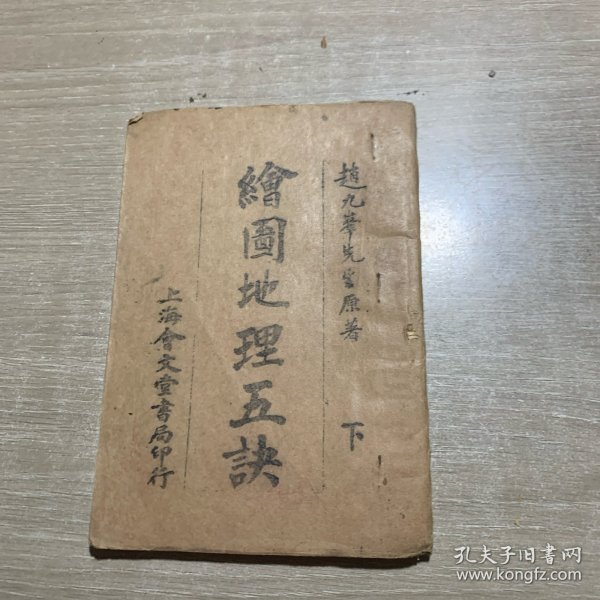 趙九峯先生原著
下
繪圖地理五訣
上海會文堂書局印行
孔夫子旧书网
www.kongfz.com